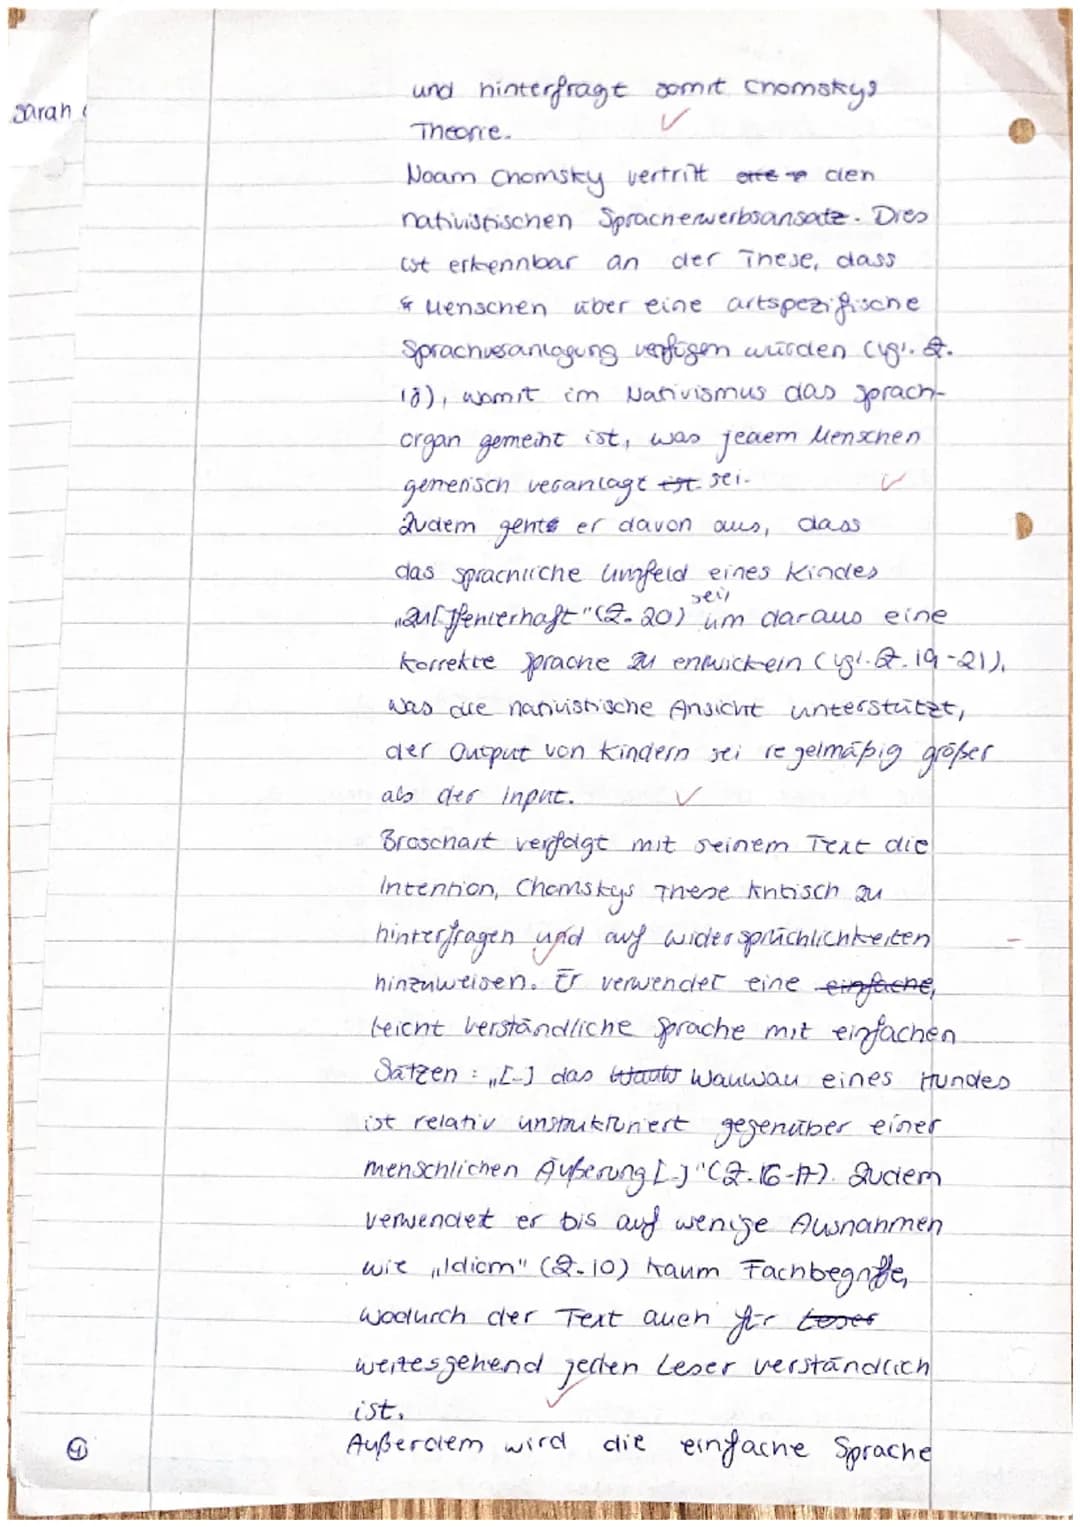 Sarah
und hinterfragt somit Chomskys
Theorie.
Noam Chomsky vertritt den
nativistischen Spracherwerbsansatz. Dies
ist erkennbar an der These, dass
Menschen über eine artspezifische
Sprachveranlagung verfügen würden (vgl. Z.
18), womit im Nativismus das Sprach-
organ gemeint ist, was jedem Menschen
generisch veranlagt ist sei.
Zudem geht er davon aus, dass
das sprachliche Umfeld eines Kindes
sei,
"zu[ ]fehlerhaft" (Z. 20) um daraus eine
korrekte Sprache zu entwickeln (vgl. Z. 19-21),
was die nativistische Ansicht unterstützt,
der Output von Kindern sei regelmäßig größer
als der Input.
Broschart verfolgt mit seinem Text die
Intention, Chomskys These kritisch zu
hinterfragen und auf Widersprüchlichkeiten
hinzuweisen. Er verwendet eine einfache,
leicht verständliche Sprache mit einfachen
Sätzen: „[..] das Wauw Wauwau eines Hundes
ist relativ unstrukturiert gegenüber einer
menschlichen Äußerung [..]" (Z. 16-17). Zudem
verwendet er bis auf wenige Ausnahmen
wie „Idiom" (Z. 10) kaum Fachbegriffe,
wodurch der Text auch für Leser
weitesgehend jeden Leser verständlich
ist.
Außerdem wird die einfache Sprache